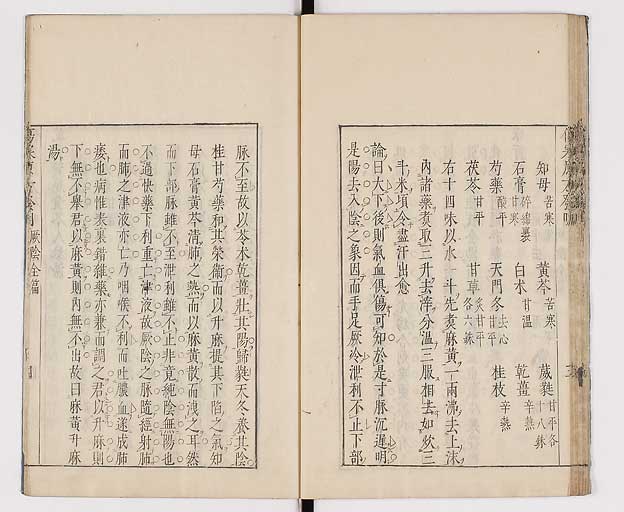 知母苦寒 黃芩苦寒 葳蕤甘平各十八銖
石膏碎綿裹甘寒 白朮甘溫 乾薑辛熱
芍藥酸平 天門冬去心甘平 桂枝辛熱
茯苓甘平 甘草炙甘平各六銖
右十四味以水一斗先煮麻黃一兩沸去上沫
內諸藥煮取三升去滓分溫三服相去如炊三
斗米頃令盡汗出愈
論曰大下後則氣血俱傷可知於是寸脈沉遲明
是陽去入陰之象因而手足厥冷泄利不止下部
脈不至故以苓朮乾薑壯其陽歸蕤天冬養其陰
桂甘芍藥和其榮衞而以升麻提其下陷之氣知
母石膏黃芩清肺之熱而以麻黃散而洩之耳然
而下部脈雖不至泄利雖不止非竟純陰無陽也
不過快藥下利重亡津液故厥陰之脈隨經射肺
而肺之津液亦亡乃咽喉不利而吐膿血遂成肺
痿也病惟表裏錯雜藥亦兼而調之君以升麻則
下無不舉君以麻黃則內無不出故曰麻黃升麻
湯
厥陰全篇